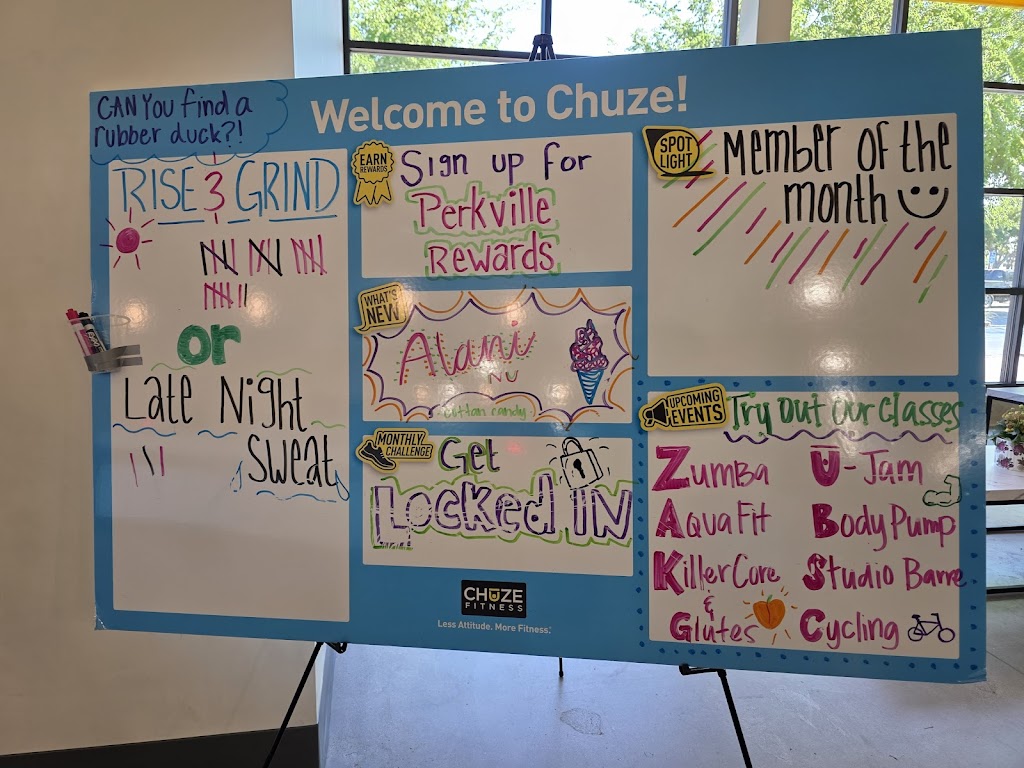 Welcome to Chuze!
CAN You find a
rubber duck?!
RISE & GRIND
or
Late Night
Sweat
EARN
REWARDS
Sign up for
Perkville
Rewards
WHAT'S
NEW
Alani
NU
cotton candy
MONTHLY
CHALLENGE
Get
Locked IN
CHUZE
FITNESS
Less Attitude. More Fitness.
SPOT
LIGHT
Member of the
month
UPCOMING
EVENTS
Try Out Our Classes
Zumba
Aqua Fit
Killer Core
&
Glutes
U-Jam
Body Pump
Studio Barre
Cycling